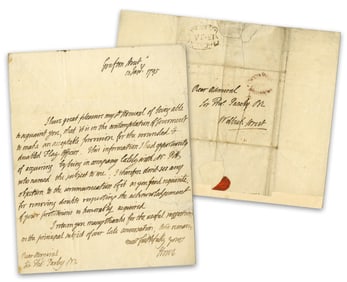 Grafton Street
12 Nov 1795
I have great pleasure my Dr Admiral of being able
to acquaint you, that it is in the contemplation of Government
to make an acceptable provision for the wounded &
disabled Flag Officer. This information I had opportunity
of acquiring by being in company lately with Mr Pitt,
who named the subject to me. I therefore don't see any
objection to the communication of it as you find requisite,
for removing doubts respecting the acknowledgement
of your pretensions so honorably acquired.
I return you many thanks for the useful suggestions
on the principal subject of our late conversation; &
most faithfully yours
Howe
Rear Admiral
Sir Thos Pasley Bt
Rear Admiral
Sir Thos Pasley Bt
Street